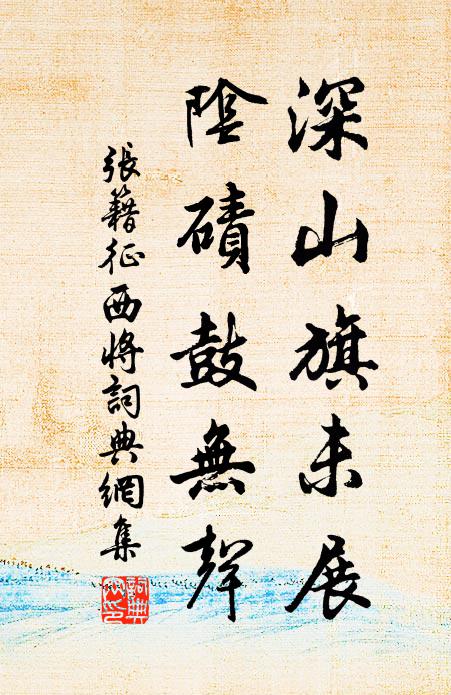 深山旗未展
陰磧鼓無聲
張籍征西將詞典網集